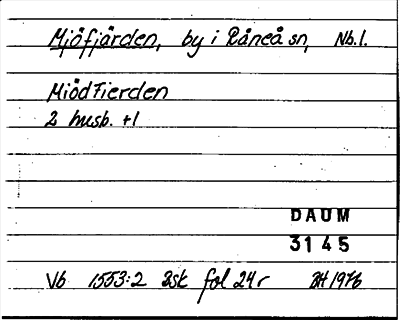 Mjöfjärden, by i Råneå sn, Nb.l.
Miödfierden
2 husb. +1
DAUM
3145
Vb 1553:2 Bsk fol 24r BH 1976